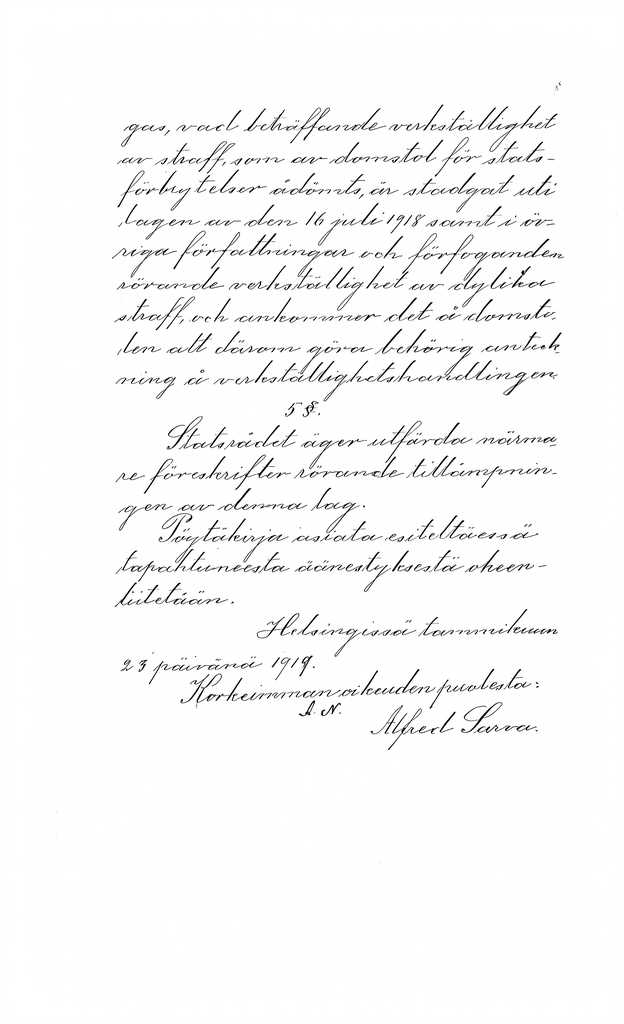 gas, vad beträffande verkställighet
av straff, som av domstol för stats-
förbrytelser ådömts, är stadgat uti
lagen av den 16 juli 1918 samt i öv-
riga författningar och förfoganden
rörande verkställighet av dylika
straff, och ankommer det å domsto-
len att därom göra behörig anteck-
ning å verkställighetshandlingen.
5 §.
Statsrådet äger utfärda närma-
re föreskrifter rörande tillämpnin-
gen av denna lag.
Pöytäkirja asiata esiteltäessä
tapahtuneesta äänestyksestä oheen-
liitetään.
Helsingissä tammikuun
23 päivänä 1919.
Korkeimman oikeuden puolesta:
A. N.
Alfred Sarva.